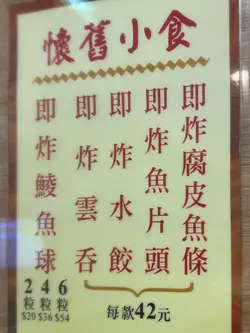 懷舊小食
即炸腐皮魚條
即炸魚片頭
即炸水餃
即炸雲吞
每款42元
即炸鯪魚球
2粒$20
4粒$36
6粒$54